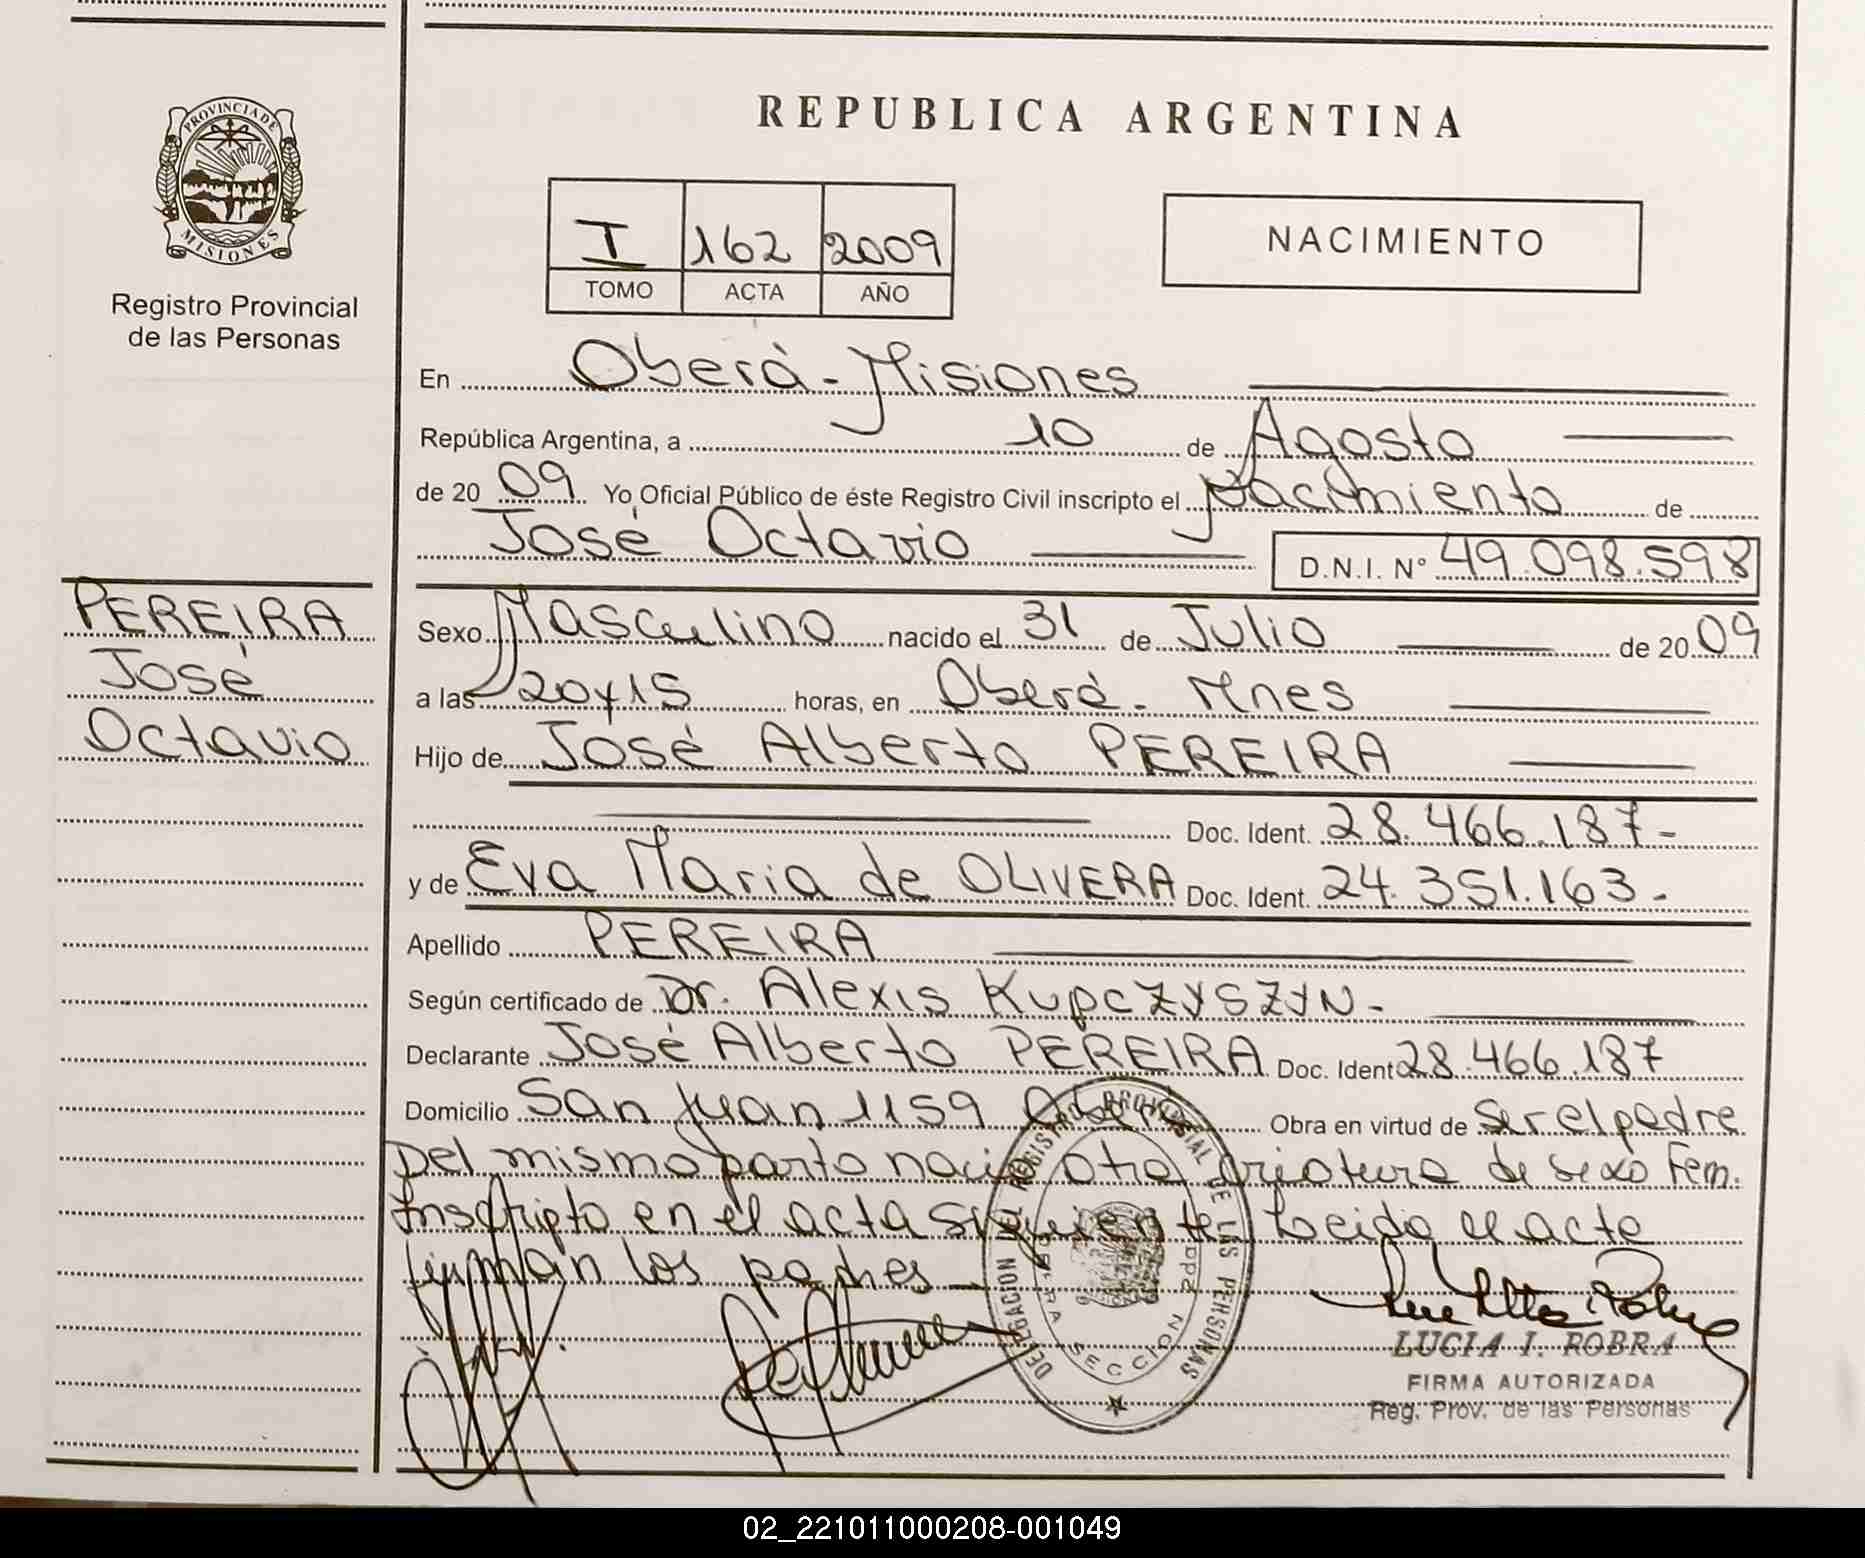 REPUBLICA ARGENTINA
PROVINCIA DE
MISIONES
Registro Provincial
de las Personas
I 162 2009
TOMO ACTA AÑO
NACIMIENTO
En Oberá - Misiones
República Argentina, a 10 de Agosto
de 20 09 Yo Oficial Público de éste Registro Civil inscripto el Nacimiento de
José Octavio D.N.I. N° 49.098.598
PEREIRA
José
Octavio
Sexo Masculino nacido el 31 de Julio de 20 09
a las 20 y 15 horas, en Oberá - Mnes
Hijo de José Alberto PEREIRA
Doc. Ident. 28.466.187-
y de Eva Maria de OLIVERA Doc. Ident. 24.351.163-
Apellido PEREIRA
Según certificado de Dr. Alexis KupcZYSZYN-
Declarante José Alberto PEREIRA Doc. Ident 28.466.187
Domicilio San Juan 1159 Oberá Obra en virtud de Ser el padre
Del mismo parto nacio otra criatura de sexo Fem.
Inscripto en el acta siguiente Leida el acta
firman los padres -
DELEGACION DEL REGISTRO PROVINCIAL DE LAS PERSONAS
SECCION
LUCIA I. ROBRA
FIRMA AUTORIZADA
Reg. Prov. de las Personas
02_221011000208-001049